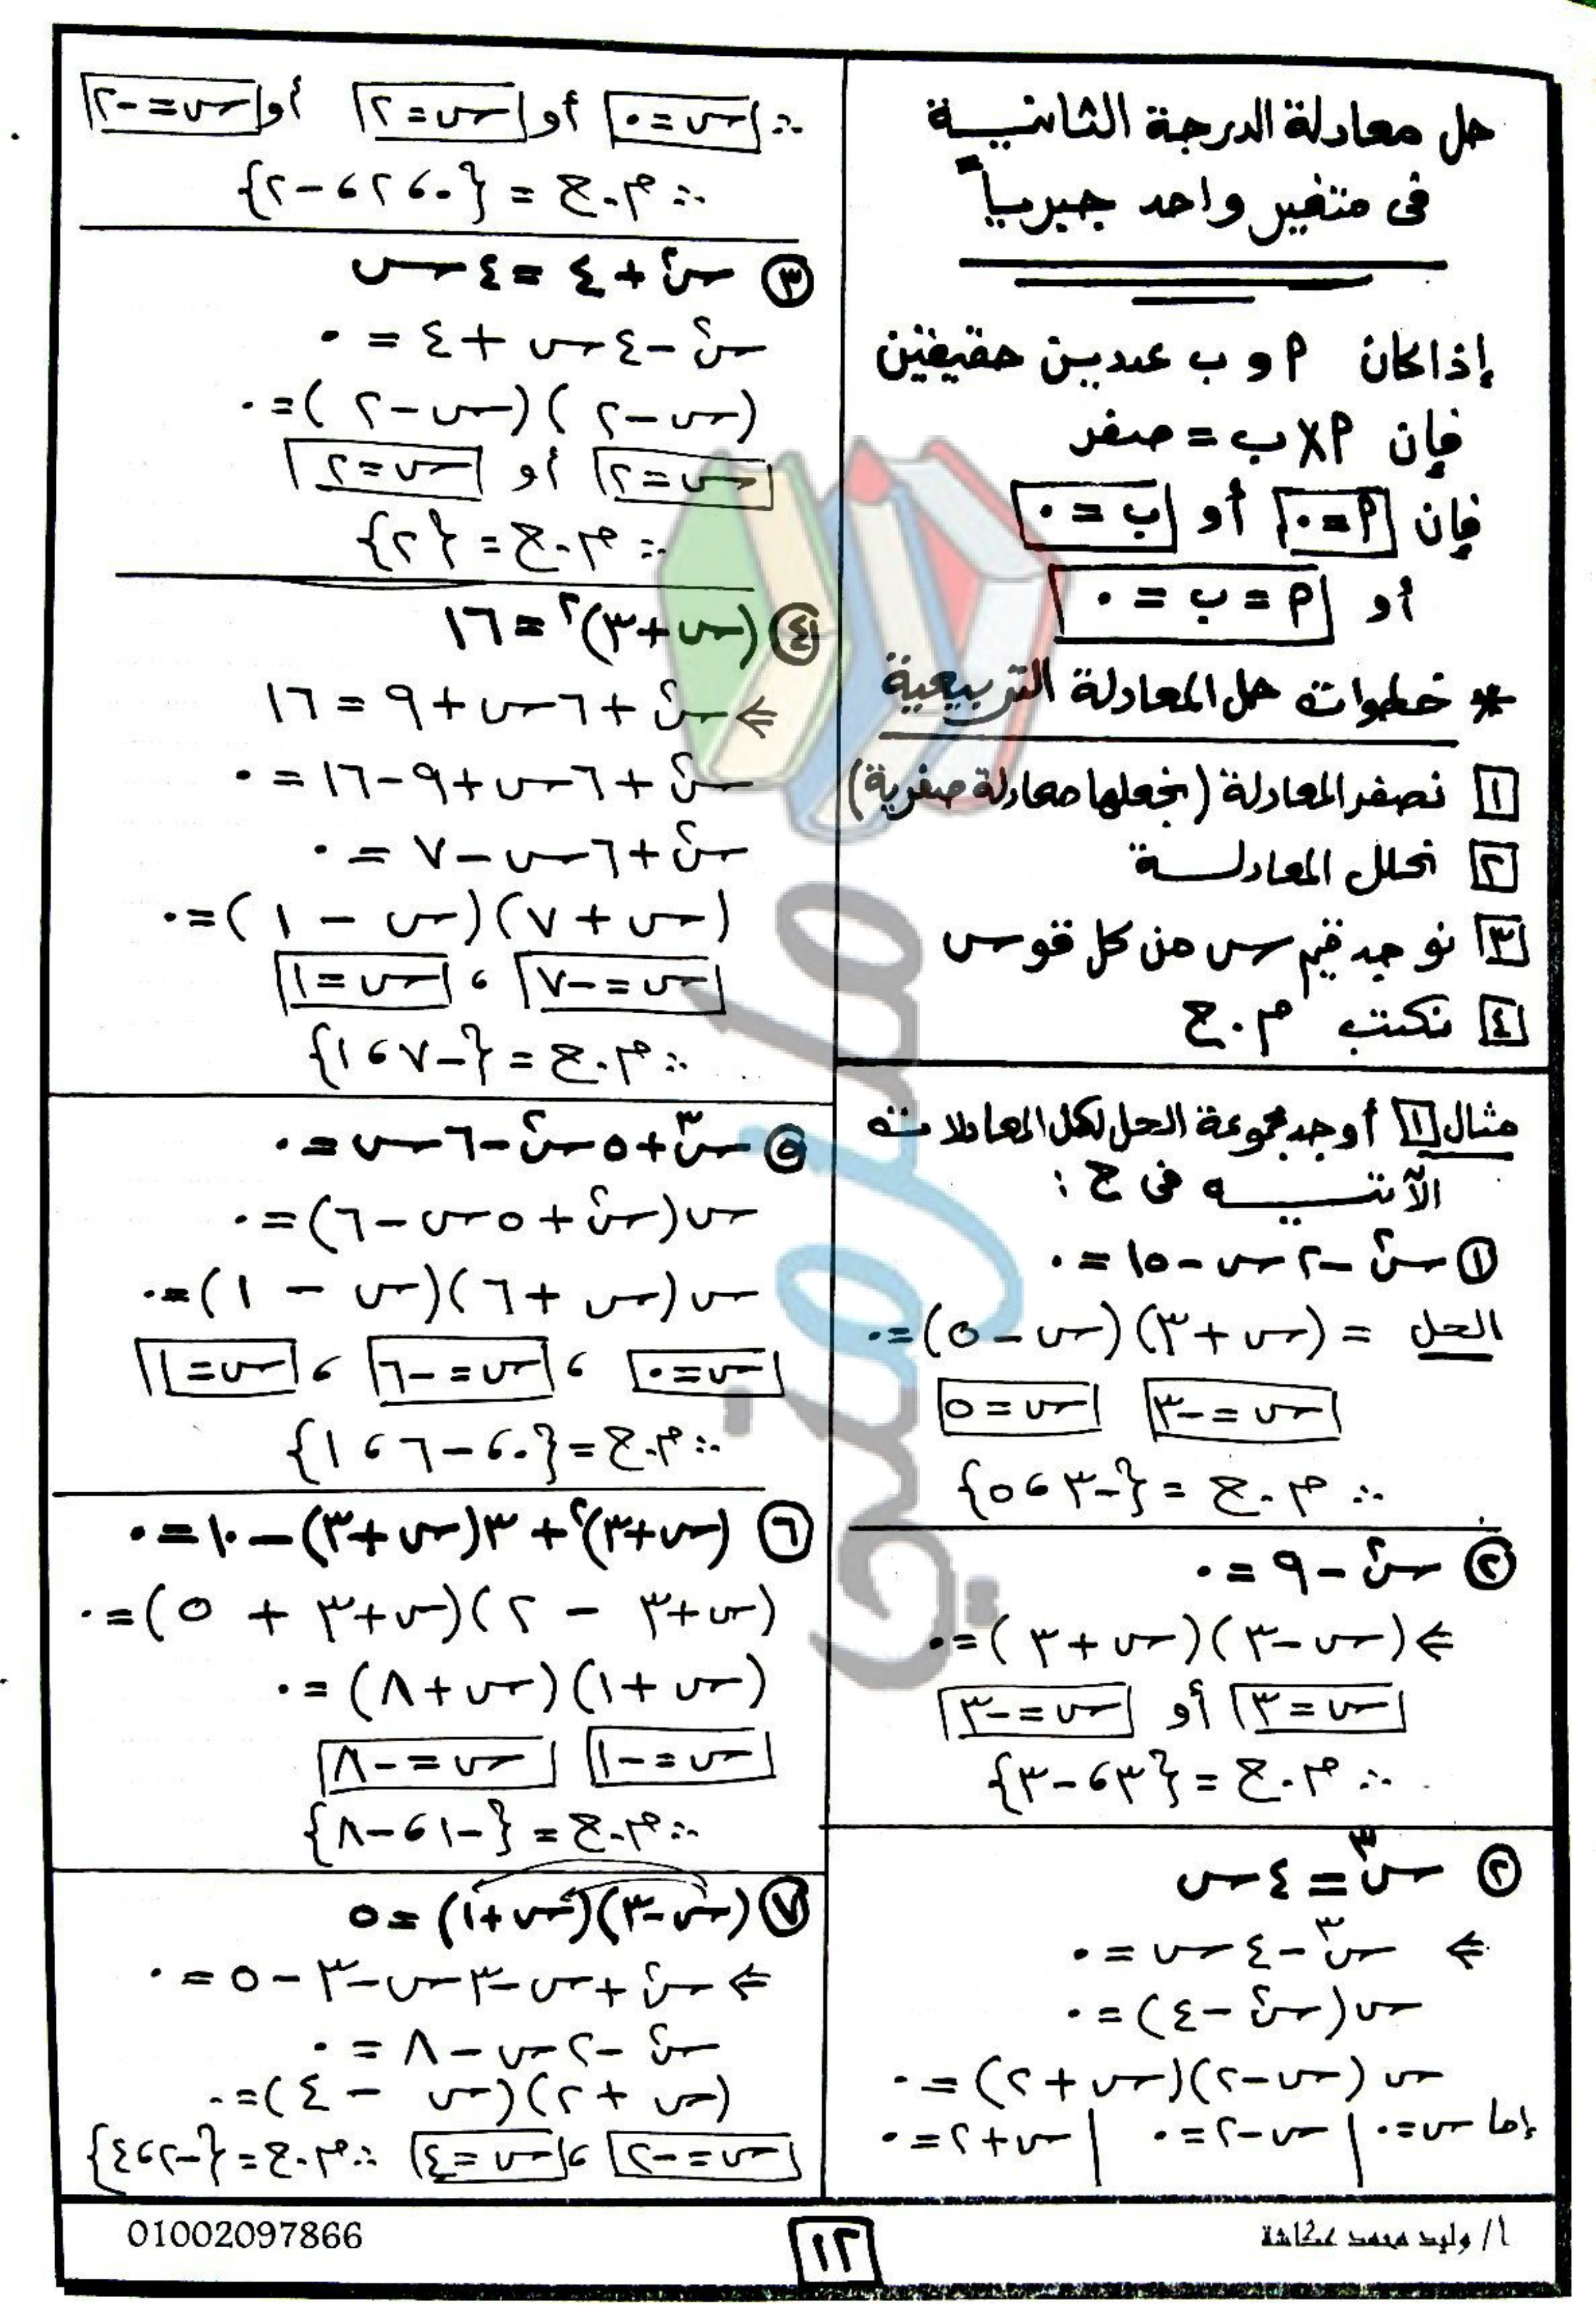 حل معادلة الدرجة الثانية
فى متغير واحد جبرياً
إذا كان P و ب عددين حقيقين
فإن P × ب = صفر
فإن P = ٠ أو ب = ٠
أو P = ب = ٠
* خطوات حل المعادلة التربيعية
١ نصفر المعادلة (نجعلها معادلة صفرية)
٢ نحلل المعادلة
٣ نوجد قيم س من كل قوس
٤ نكتب م.ح
مثال ١ أوجد مجموعة الحل لكل المعادلات
الآتيه فى ح :
① س² - ٢س - ١٥ = ٠
الحل = (س + ٣)(س - ٥) = ٠
س = -٣ س = ٥
∴ م.ح = {-٣ ، ٥}
② س² - ٩ = ٠
⇐ (س - ٣)(س + ٣) = ٠
س = ٣ أو س = -٣
∴ م.ح = {٣ ، -٣}
② س³ = ٤س
⇐ س³ - ٤س = ٠
س(س² - ٤) = ٠
س(س - ٢)(س + ٢) = ٠
إما س = ٠ | س - ٢ = ٠ | س + ٢ = ٠
∴ س = ٠ أو س = ٢ أو س = -٢
∴ م.ح = {٠ ، ٢ ، -٢}
③ س² + ٤ = ٤س
س² - ٤س + ٤ = ٠
(س - ٢)(س - ٢) = ٠
س = ٢ أو س = ٢
∴ م.ح = {٢}
④ (س + ٣)² = ١٦
⇐ س² + ٦س + ٩ = ١٦
س² + ٦س + ٩ - ١٦ = ٠
س² + ٦س - ٧ = ٠
(س + ٧)(س - ١) = ٠
س = -٧ ، س = ١
∴ م.ح = {-٧ ، ١}
⑤ س³ + ٥س² - ٦س = ٠
س(س² + ٥س - ٦) = ٠
س(س + ٦)(س - ١) = ٠
س = ٠ ، س = -٦ ، س = ١
∴ م.ح = {٠ ، -٦ ، ١}
⑥ (س + ٣)² + ٣(س + ٣) - ١٠ = ٠
(س + ٣ - ٢)(س + ٣ + ٥) = ٠
(س + ١)(س + ٨) = ٠
س = -١ س = -٨
∴ م.ح = {-١ ، -٨}
⑦ (س - ٣)(س + ١) = ٥
⇐ س² + س - ٣س - ٣ - ٥ = ٠
س² - ٢س - ٨ = ٠
(س + ٢)(س - ٤) = ٠
س = -٢ ، س = ٤ ∴ م.ح = {-٢ ، ٤}
أ/ وليد محمد عكاشة
١٢
01002097866